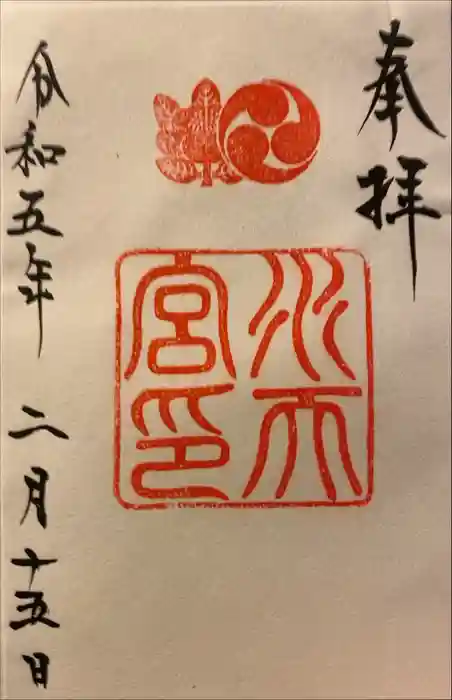 奉拝
水天
宮印
令和五年 二月十五日